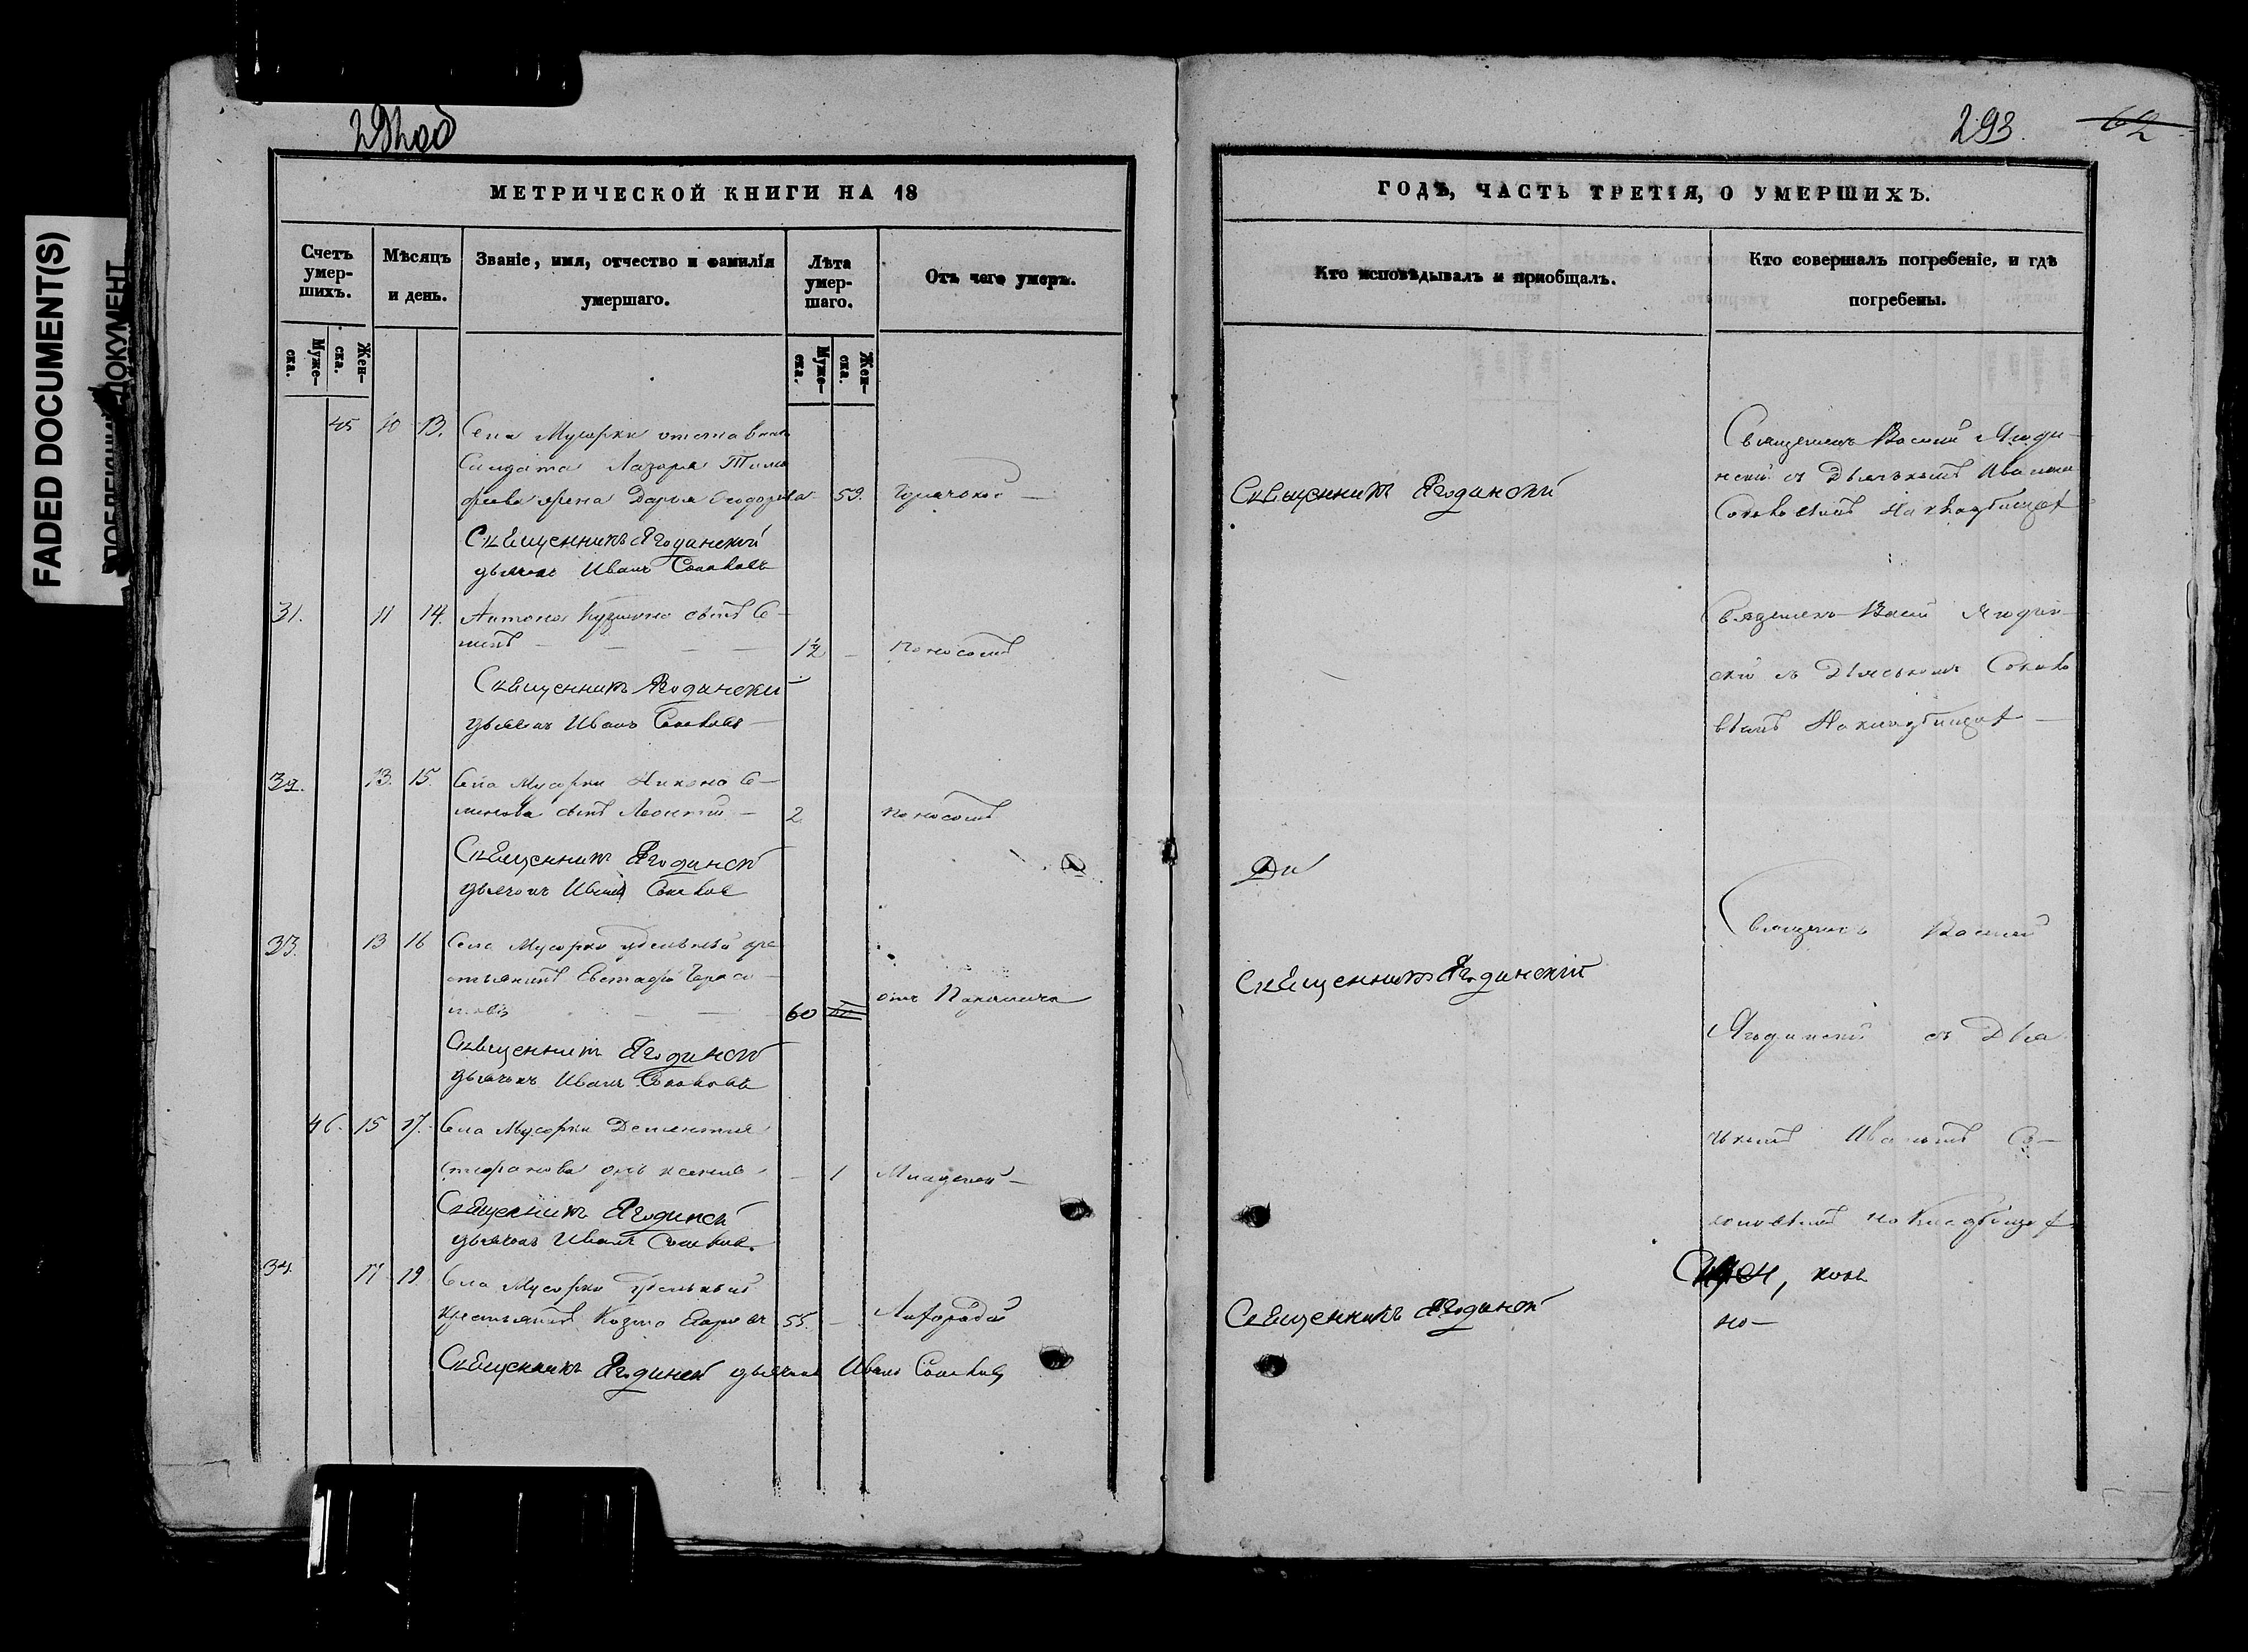 FADED DOCUMENT(S)
292об
МЕТРИЧЕСКОЙ КНИГИ НА 18
Счетъ умер-шихъ.
Мѣсяцъ и день.
Званіе, имя, отчество и фамилія умершаго.
Лѣта умер-шаго.
Отъ чего умеръ.
Муже-ска.
Жен-ска.
Муже-ска.
Жен-ска.
45 10 13. Села Мусорки отставнаго
Солдата Лазаря Тимо
феева жена Дарья Ѳеодорова 59. Горячкою
Священникъ Ягодинскій
дьячокъ Иванъ Соколовъ
31. 11 14. Антона Кузмина сынъ Се-
1½ Поносомъ
Священникъ Ягодинскій
дьячокъ Иванъ Соколовъ
32. 13. 15. Села Мусорки Никона Се-
менова сынъ Леонтій 2. Поносомъ
Священникъ Ягодинскій
дьячокъ Иванъ Соколовъ
33. 13 16 Села Мусорки удѣльный кре
стьянинъ Евстафій Гераси
мовъ 60 отъ
Священникъ Ягодинскій
дьячокъ Иванъ Соколовъ
46. 15 17. Села Мусорки Дементія
Стефанова дочь Ксенія 1
Священникъ Ягодинскій
дьячокъ Иванъ Соколовъ
34. 17 19. Села Мусорки удѣльный
крестьянинъ Козма 55.
Священникъ Ягодинскій дьячокъ Иванъ Соколовъ
293. 62
ГОДЪ, ЧАСТЬ ТРЕТІЯ, О УМЕРШИХЪ.
Кто исповѣдывалъ и приобщалъ.
Кто совершалъ погребеніе, и гдѣ погребены.
Священникъ Ягодинскій
Священникъ Василій Ягоди-
нскій съ Дьячкомъ Иваномъ
Соколовымъ На кладбищѣ
Священникъ Василій Ягодин-
скій съ Дьячкомъ Соколо
вымъ На кладбищѣ
Священникъ Василій
Священникъ Ягодинскій
Ягодинскій съ Дья
чкомъ Иваномъ Со-
коловымъ на кладбищѣ
Священникъ Ягодинскій